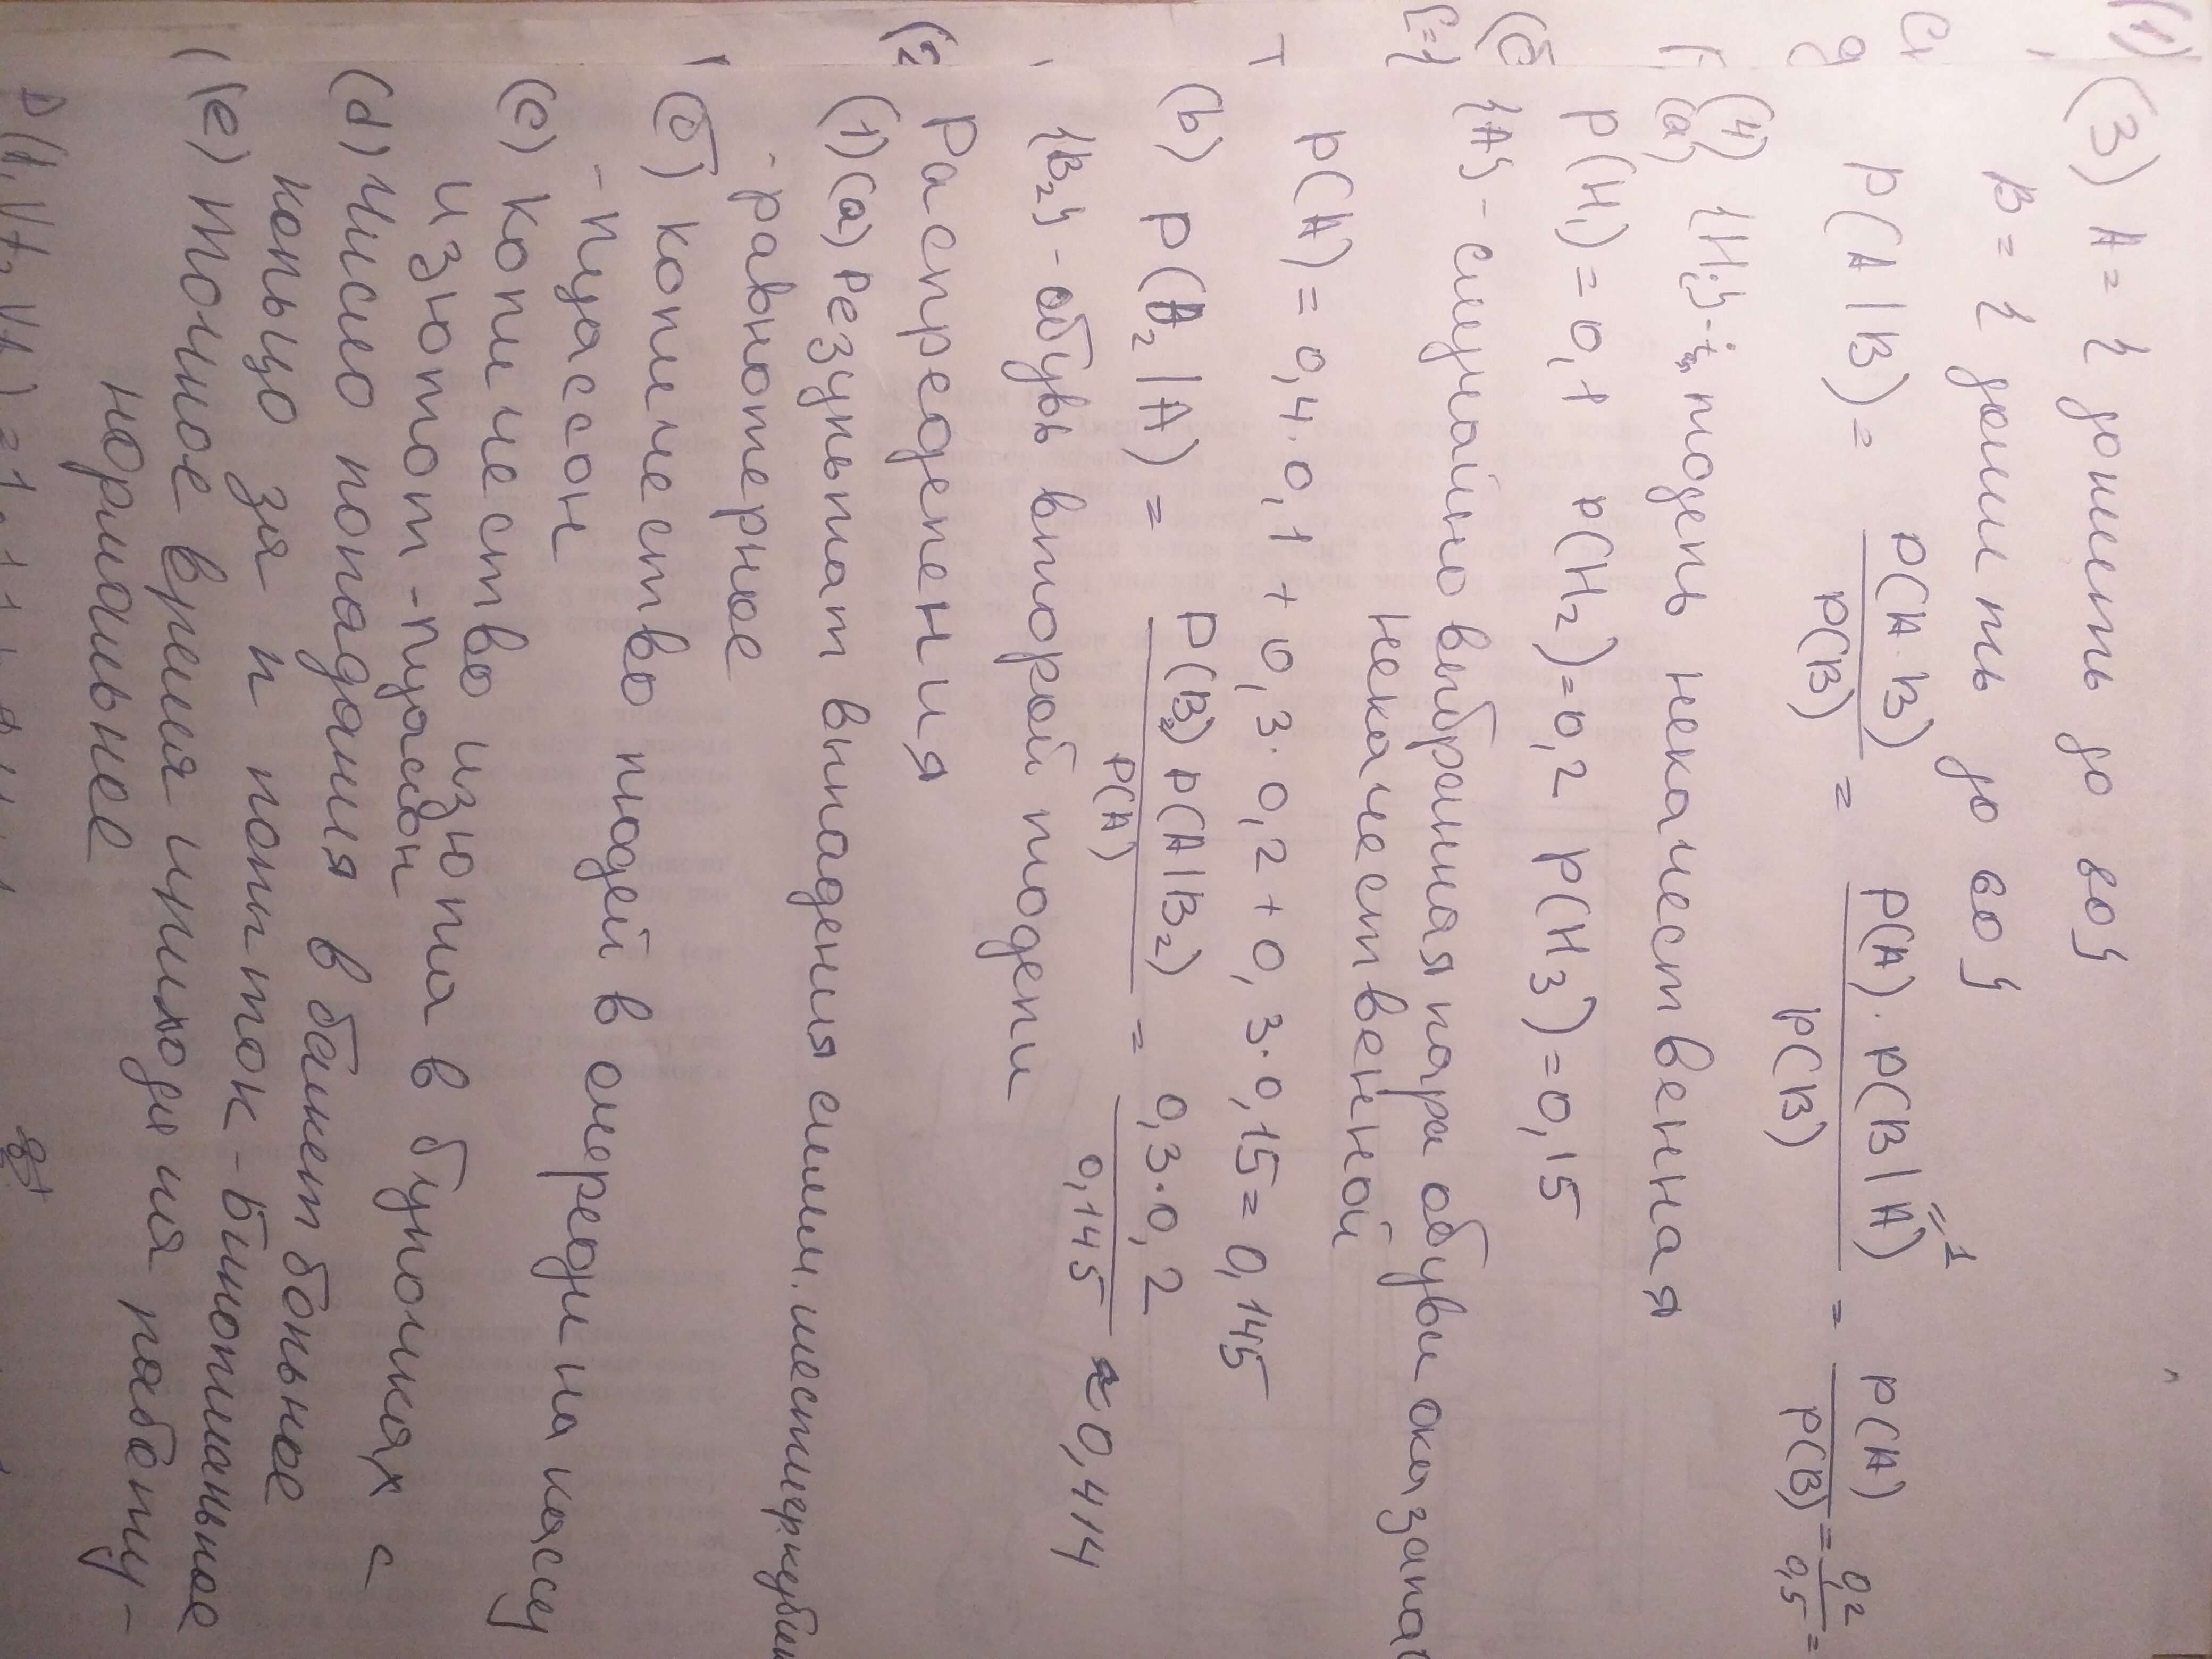 (1)
(3) A = { дожить до 80}
B = { дожить до 60}
P(A|B) = P(A·B)/P(B) = P(A)·P(B|A)/P(B) = P(A)/P(B) = 0,2/0,5 =
= 1
(4)
(a) {Hi} - i модель некачественная
P(H₁) = 0,1 P(H₂) = 0,2 P(H₃) = 0,15
{A} - случайно выбранная пара обуви оказалас
некачественной
P(A) = 0,4·0,1 + 0,3·0,2 + 0,3·0,15 = 0,145
(b) P(B₂|A) = P(B₂) P(A|B₂)/P(A) = 0,3·0,2/0,145 ≈ 0,414
{B₂} - обувь второй модели
Распределения
(1) (a) Результат выпадения симм. шестигр. кубик
- равномерное
(б) Количество людей в очереди на кассу
- Пуассон
(c) Количество изюма в булочках с
изюмом - Пуассон
(d) Число попадания в баскетбольное
кольцо за n попыток - Биномиальное
(e) Точное время прихода на работу -
нормальное